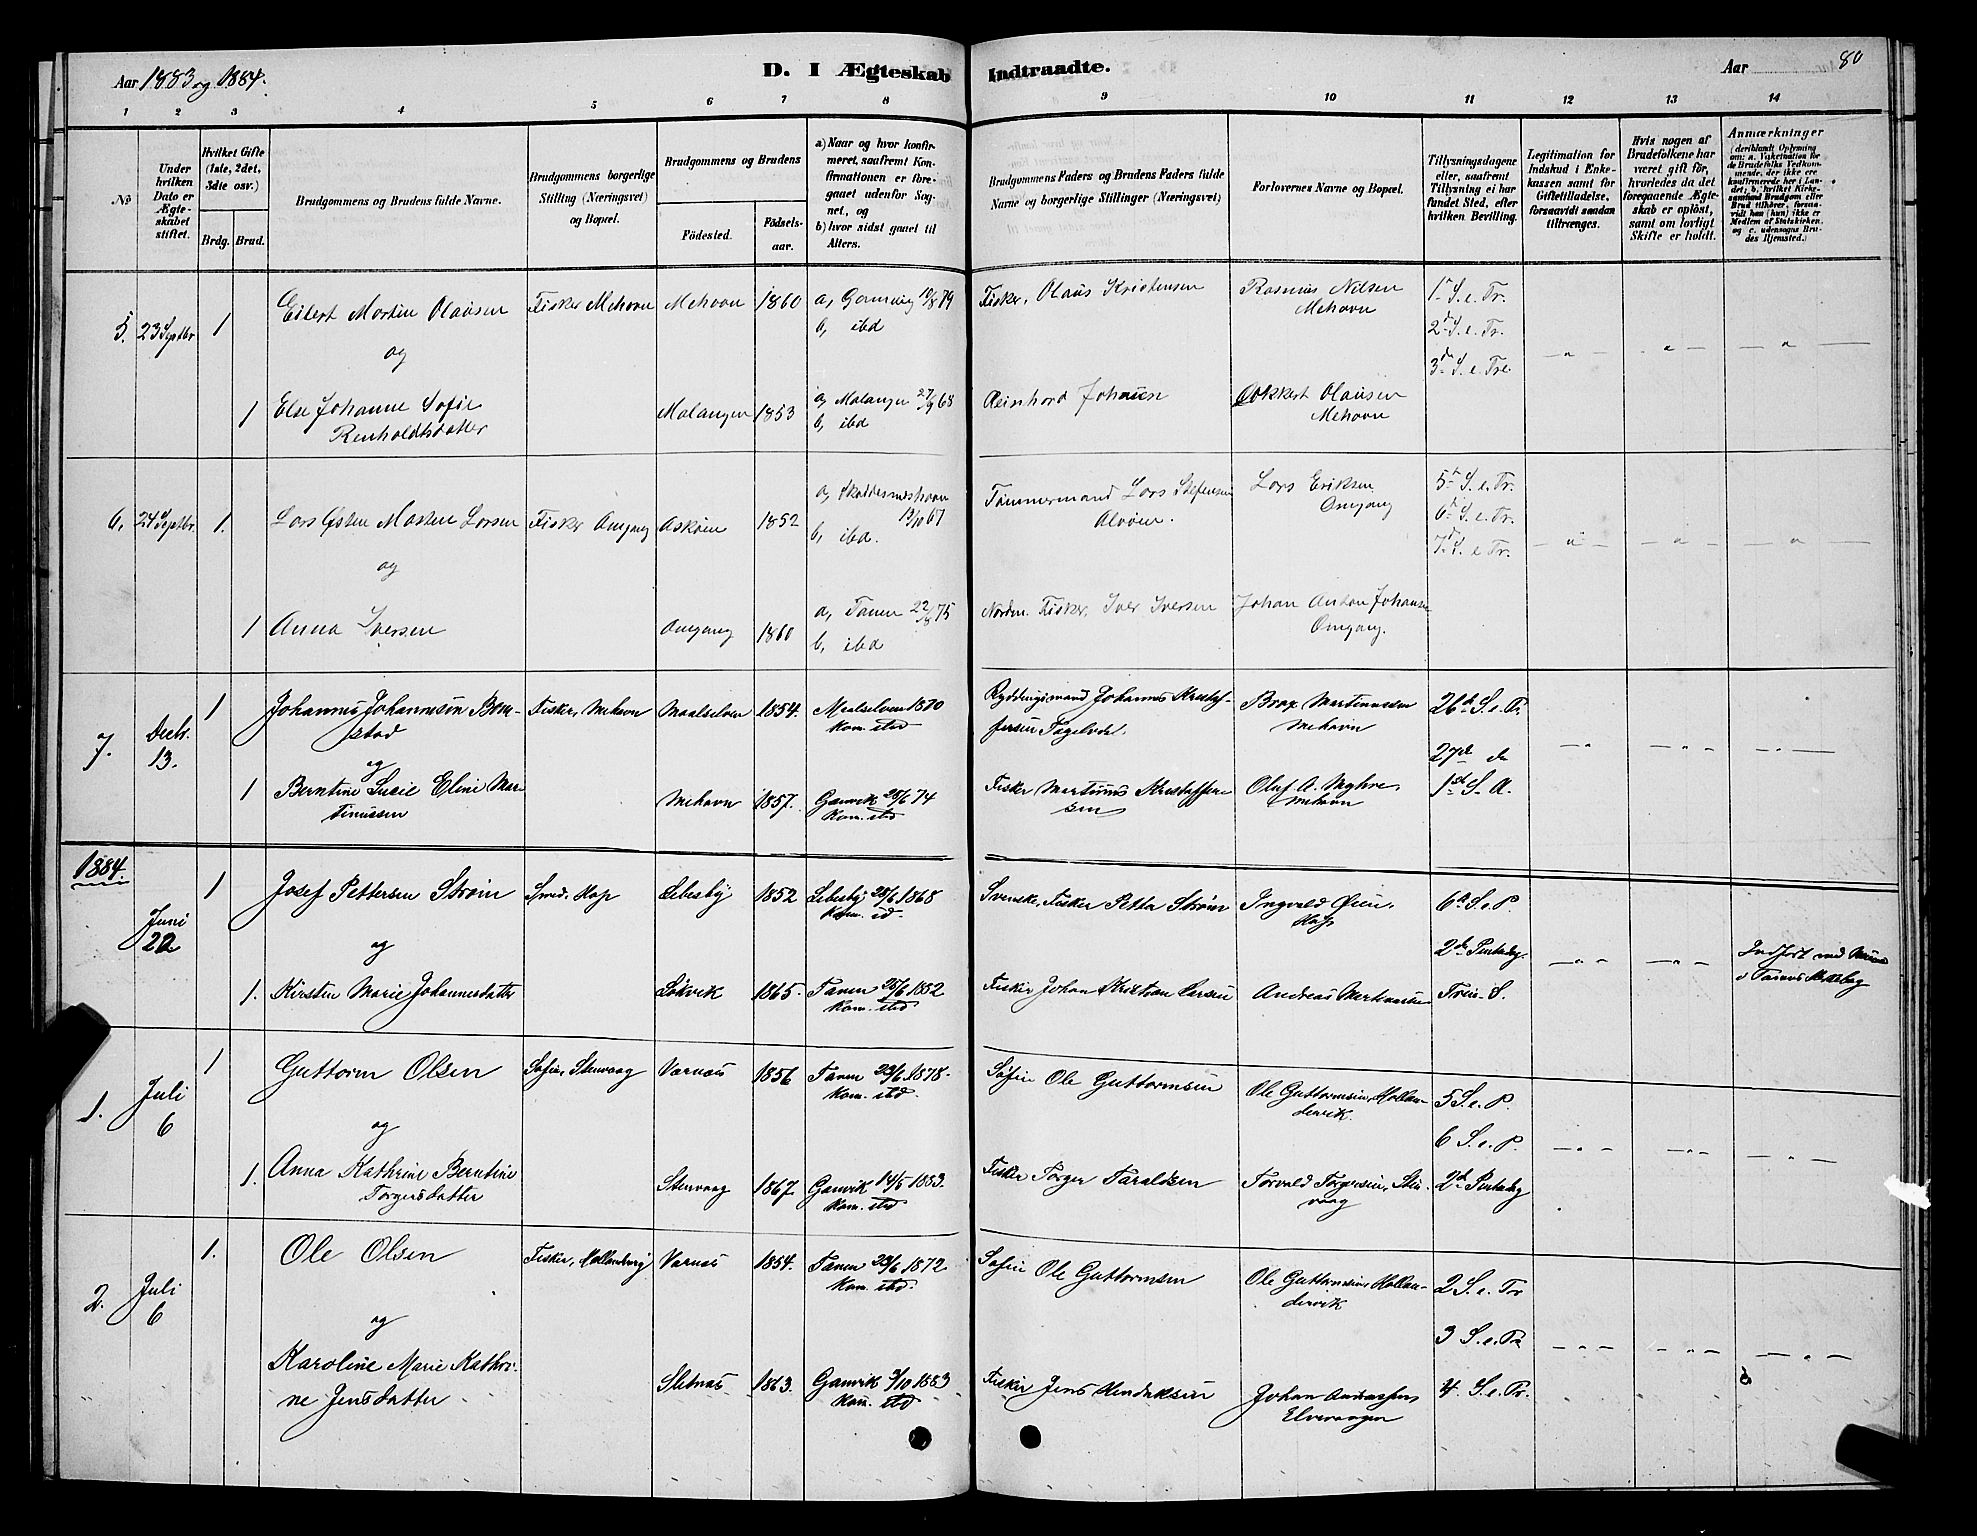 Aar 1883 og 1884.
D. I Ægteskab Indtraadte.
Aar
80
1 2 3 4 5 6 7 8 9 10 11 12 13 14
No
Under hvilken Dato er Ægteskabet stiftet.
Hvilket Gifte (1ste, 2det, 3die osv.)
Brdg. Brud.
Brudgommens og Brudens fulde Navne.
Brudgommens borgerlige Stilling (Næringsvei) og Bopæl.
Brudgommens og Brudens
Födested.
Födselsaar.
a) Naar og hvor konfirmeret, saafremt Konfirmationen er foregaaet udenfor Sognet, og
b) hvor sidst gaaet til Alters.
Brudgommens Faders og Brudens Faders fulde Navne og borgerlige Stillinger (Næringsvei)
Forlovernes Navne og Bopæl.
Tillysningsdagene eller, saafremt Tillysning ei har fundet Sted, efter hvilken Bevilling.
Legitimation for Indskud i Enkekassen samt for Giftetilladelse, forsaavidt saadan tiltrænges.
Hvis nogen af Brudefolkene har været gift før, hvorledes da det foregaaende Ægteskab er oplöst, samt om lovligt Skifte er holdt.
Anmærkninger (deriblandt Oplysning om: a. Vakcination for de Brudefolks Vedkommende, der ikke ere konfirmerede her i Landet; b. hvilket Kirkesamfund Brudgom eller Brud tilhörer, forsaavidt han (hun) ikke er Medlem af Statskirken, og c. udensogns Brudes Hjemsted.)
5. 23 Septbr 1 Eilert Martin Olausen Fisker Mehavn Mehavn 1860 a, Gamvig 10/8 79 Fisker, Olaus Kristensen Rasmus Nilsen 1ste S. e. Tr.
b, ibd Mehavn 2d S. e. Tr.
og 3de S. e. Tre
1 Else Johanne Sofie Malangen 1853 a, Malangen 27/9 68 Reinhard Johansen Okkert Olausen
Renholdtsdatter b, ibd Mehavn
6, 24 Septbr. 1. Lars Østen Morten Larsen Fisker Omgang Askøen 1852 a, 13/10 67 Tømmermand Lars Steffensen Lars Eriksen 5te S. e. Tr.
b, ibd. Alvøen. Omgang 6te S. e. Tr.
og 7de S. e Tr.
1 Anna Iversen Omgang 1860 a, Tanen 22/8 75 Nordm. Fisker, Iver Iversen Johan Anton Johansen
b, ibd Omgang.
7. Decbr. 13. 1 Johannes Johannesen Bomstad Fisker, Mehavn Maalselven 1854. Maalselven 1870 Rydningsmand Johannes Kristoffersen Brox Martinussen 26de S. e. Tr.
Kom. ibd Mehavn
og 27de do
1 Berntine Lucie Eline Martinussen Mehavn 1857. Gamvik 28/6 74 Fisker Martinus Kristoffersen Olaf A. Myhre, 1ste S. A.
Kom. ibd Mehavn
1884.
Juni 22 1 Josef Pettersen Strøm Smed. Hop Lebesby 1852 Lebesby 28/6 1868 Svenske, Fisker Petter Strøm Ingvald Øien, 6te S. e P.
Kom. id. Hop
og 2den Pintsdag.
1. Kirsten Marie Johannesdatter Løkvik 1865. Tanen 25/6 1882 Fisker Johan Kristian Larsen Andreas Martinussen Trin. S.
Kom. ibd.
1. Juli 6 1 Guttorm Olsen Søfin, Stenvaag Varnæs 1856 Tanen 23/6 1878. Søfin Ole Guttormsen Ole Guttormsen, Hollendervik. 5 S. e. P.
Kom. ibd.
og 6 S. e. P.
1. Anna Kathrine Berntine Torgersdatter Stenvaag 1867. Gamvik 14/5 1883. Fisker Torger Taraldsen Torvald Torgersen, Stenvaag 2d Pintsdag
Kom. ibd
2. Juli 6 1. Ole Olsen Fisker, Varnæs 1854. Tanen 23/6 1872 Søfin Ole Guttormsen Ole Guttormsen, Hollendervik 2 S. e. Tr
Kom. ibd.
og 3 S. e. Tr
Karoline Marie Kathrine Jensdatter Sletnæs 1863. Gamvik 7/10 1883 Fisker Jens Hendriksen Johan Andreassen 4. S. e. Tr.
Kom. ibd Elvevaagen